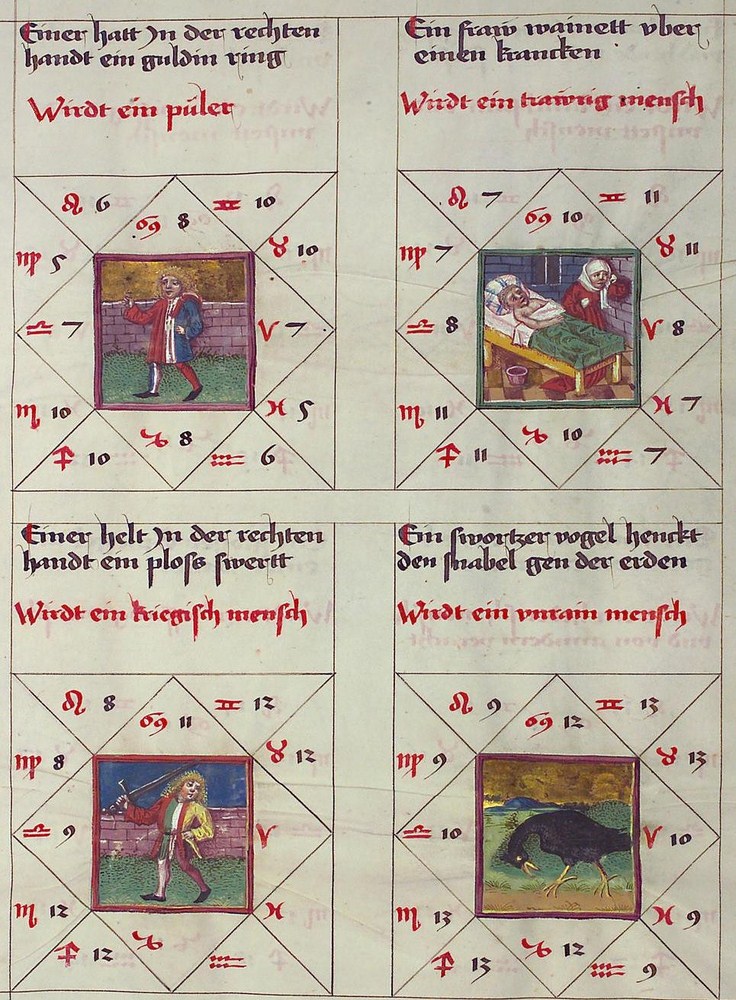 Einer hatt Jn der rechten
handt ein guldin ring
Wirdt ein püler
♌ 6 ♋ 8 ♊ 10
♍ 5 ♉ 10
♎ 7 ♈ 7
♏ 10 ♓ 5
♐ 10 ♑ 8 ♒ 6
Ein fraw wainett vber
einen krancken
Wirdt ein trawrig mensch
♌ 7 ♋ 10 ♊ 11
♍ 7 ♉ 11
♎ 8 ♈ 8
♏ 11 ♓ 7
♐ 11 ♑ 10 ♒ 7
Einer helt Jn der rechten
handt ein ploss swertt
Wirdt ein kriegisch mensch
♌ 8 ♋ 11 ♊ 12
♍ 8 ♉ 12
♎ 9 ♈
♏ 12 ♓
♐ 12 ♑ ♒
Ein swortzer vogel henckt
den snabel gen der erden
Wirdt ein vnrain mensch
♌ 9 ♋ 12 ♊ 13
♍ 9 ♉ 13
♎ 10 ♈ 10
♏ 13 ♓ 9
♐ 13 ♑ 12 ♒ 9